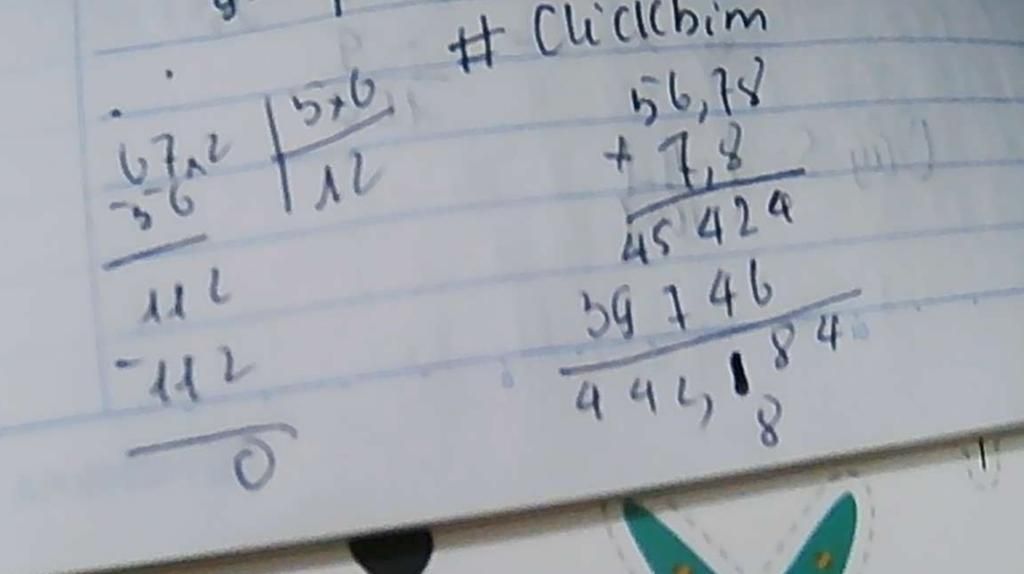 # Clickbim
67,2 | 5,6
-56 12
112
-112
0
56,78
+ 7,8
45 424
39 7 46
4 4 2, 1 8 4
8